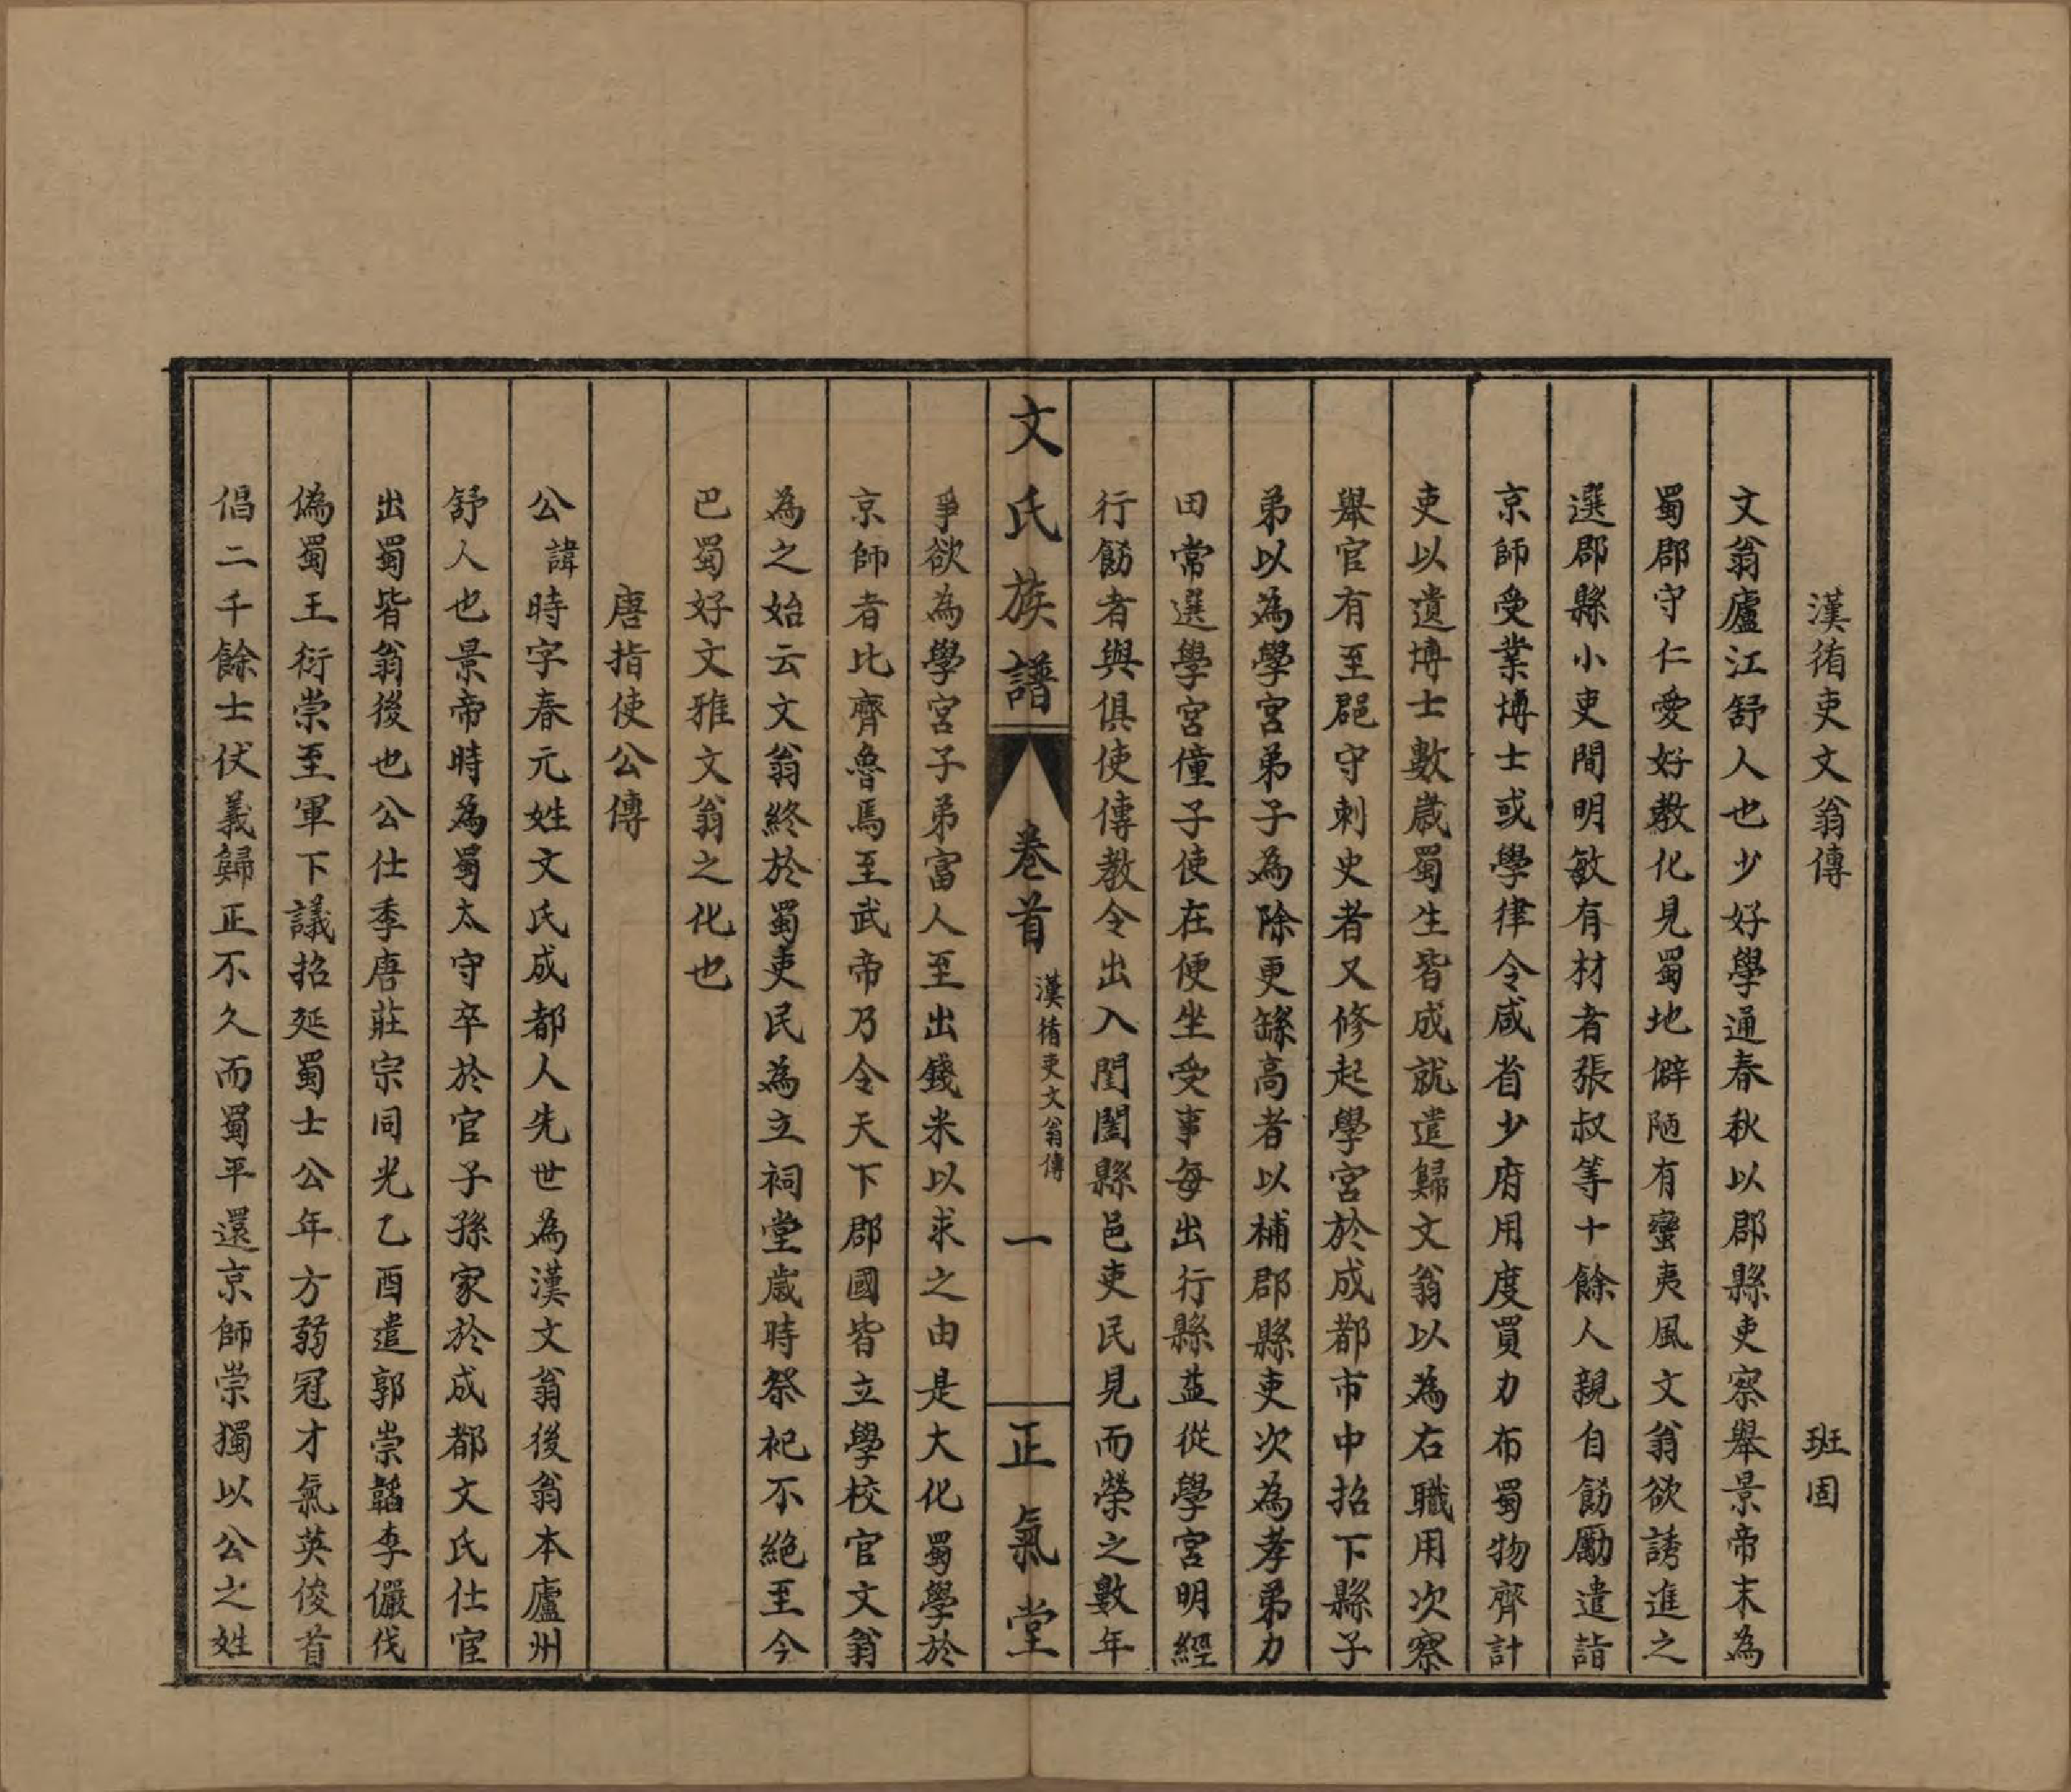 漢循吏文翁傳　班固
文翁廬江舒人也少好學通春秋以郡縣吏察舉景帝末為
蜀郡守仁愛好教化見蜀地僻陋有蠻夷風文翁欲誘進之
選郡縣小吏間明敏有材者張叔等十餘人親自飭勵遣詣
京師受業博士或學律令咸省少府用度買力布蜀物齊計
吏以遺博士數歲蜀生皆成就遣歸文翁以為右職用次察
舉官有至郡守刺史者又修起學宮於成都市中招下縣子
弟以為學宮弟子為除更繇高者以補郡縣吏次為孝弟力
田常選學宮僮子使在便坐受事每出行縣益從學宮明經
行飭者與俱使傳教令出入閨闔縣邑吏民見而榮之數年
文氏族譜　卷首　漢循吏文翁傳　一　正氣堂
爭欲為學宮子弟富人至出錢米以求之由是大化蜀學於
京師者比齊魯馬至武帝乃令天下郡國皆立學校官文翁
為之始云文翁終於蜀吏民為立祠堂歲時祭祀不絕至今
巴蜀好文雅文翁之化也
唐指使公傳
公諱時字春元姓文氏成都人先世為漢文翁後翁本廬州
舒人也景帝時為蜀太守卒於官子孫家於成都文氏仕宦
出蜀皆翁後也公仕季唐莊宗同光乙酉遣郭崇韜李儼伐
偽蜀王衍崇至軍下議招延蜀士公年方弱冠才氣英俊首
倡二千餘士伏義歸正不久而蜀平還京師崇獨以公之姓